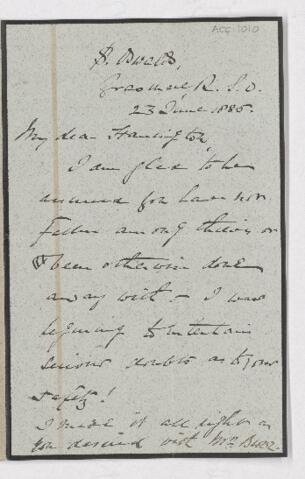 ACC 1010
St. Oswalds,
Grasmere R.S.O.
23 June 1885.
My dear
I am glad to be
assured you have not
fallen among thieves or
been otherwise done
away with - I was
beginning to entertain
serious doubts as to your
safety!
I made it all right as
you desired with Mrs